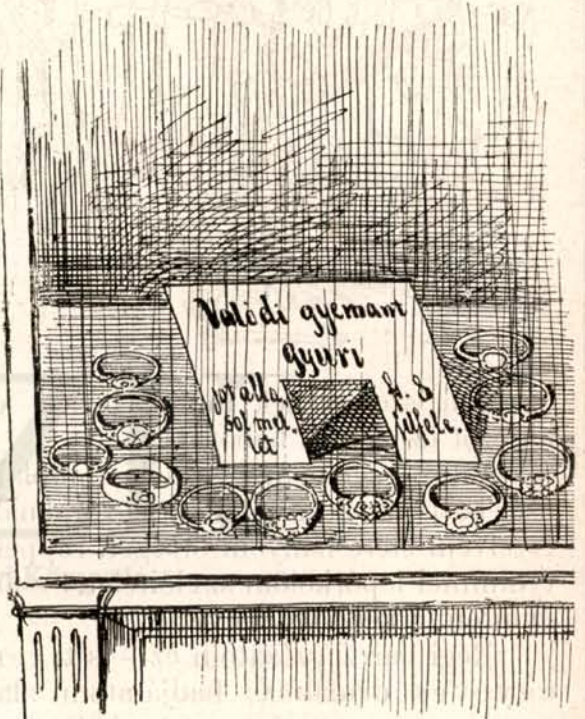 Valódi gyemant
gyuri
jot alla,
sol mel.
let
8
felfele.